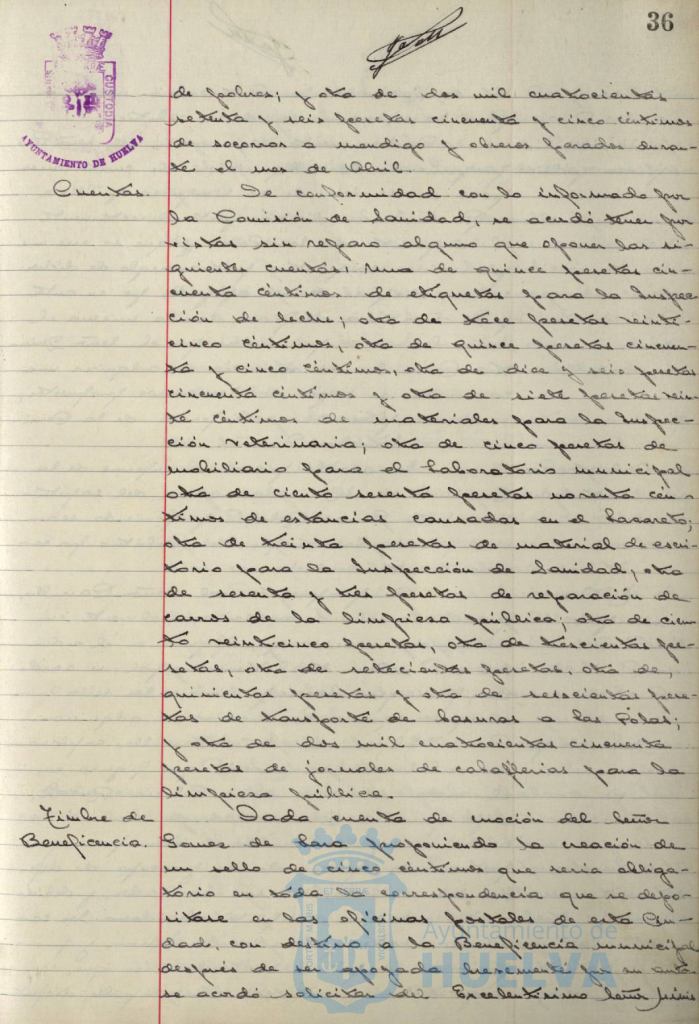 36
CUSTODIA
AYUNTAMIENTO DE HUELVA
de pobres; y otra de dos mil cuatrocientas
setenta y seis pesetas cincuenta y cinco céntimos
de socorros a mendigo y obreros parados duran-
te el mes de Abril.
Cuentas.
De conformidad con lo informado por
la Comisión de Sanidad, se acordó tener por
vistas sin reparo alguno que oponer las si-
guientes cuentas; una de quince pesetas cin-
cuenta céntimos de etiquetas para la Inspec-
ción de leche; otra de trece pesetas veinti-
cinco céntimos, otra de quince pesetas cincuen-
ta y cinco céntimos, otra de diez y seis pesetas
cincuenta céntimos y otra de siete pesetas vein-
te céntimos de materiales para la Inspec-
ción veterinaria; otra de cinco pesetas de
mobiliario para el Laboratorio municipal
otra de ciento sesenta pesetas noventa cén-
timos de estancias causadas en el Lazareto;
otra de treinta pesetas de material de escri-
torio para la Inspección de Sanidad; otra
de sesenta y tres pesetas de reparación de
carros de la limpieza pública; otra de cien-
to veinticinco pesetas, otra de trescientas pe-
setas, otra de setecientas pesetas, otra de
quinientas pesetas y otra de seiscientas pese-
tas de transporte de basuras a las Potas;
y otra de dos mil cuatrocientas cincuenta
pesetas de jornales de caballerías para la
limpieza pública.
Timbre de
Beneficencia.
Dada cuenta de moción del Señor
Gomez de Lara proponiendo la creación de
un sello de cinco céntimos que sería obliga-
torio en toda la correspondencia que se depo-
sitare en las oficinas postales de esta Ciu-
dad, con destino a la Beneficencia municipal
después de ser apoyada brevemente por su autor
se acordó solicitar del Excelentísimo Señor Minis
Ayuntamiento de
HUELVA